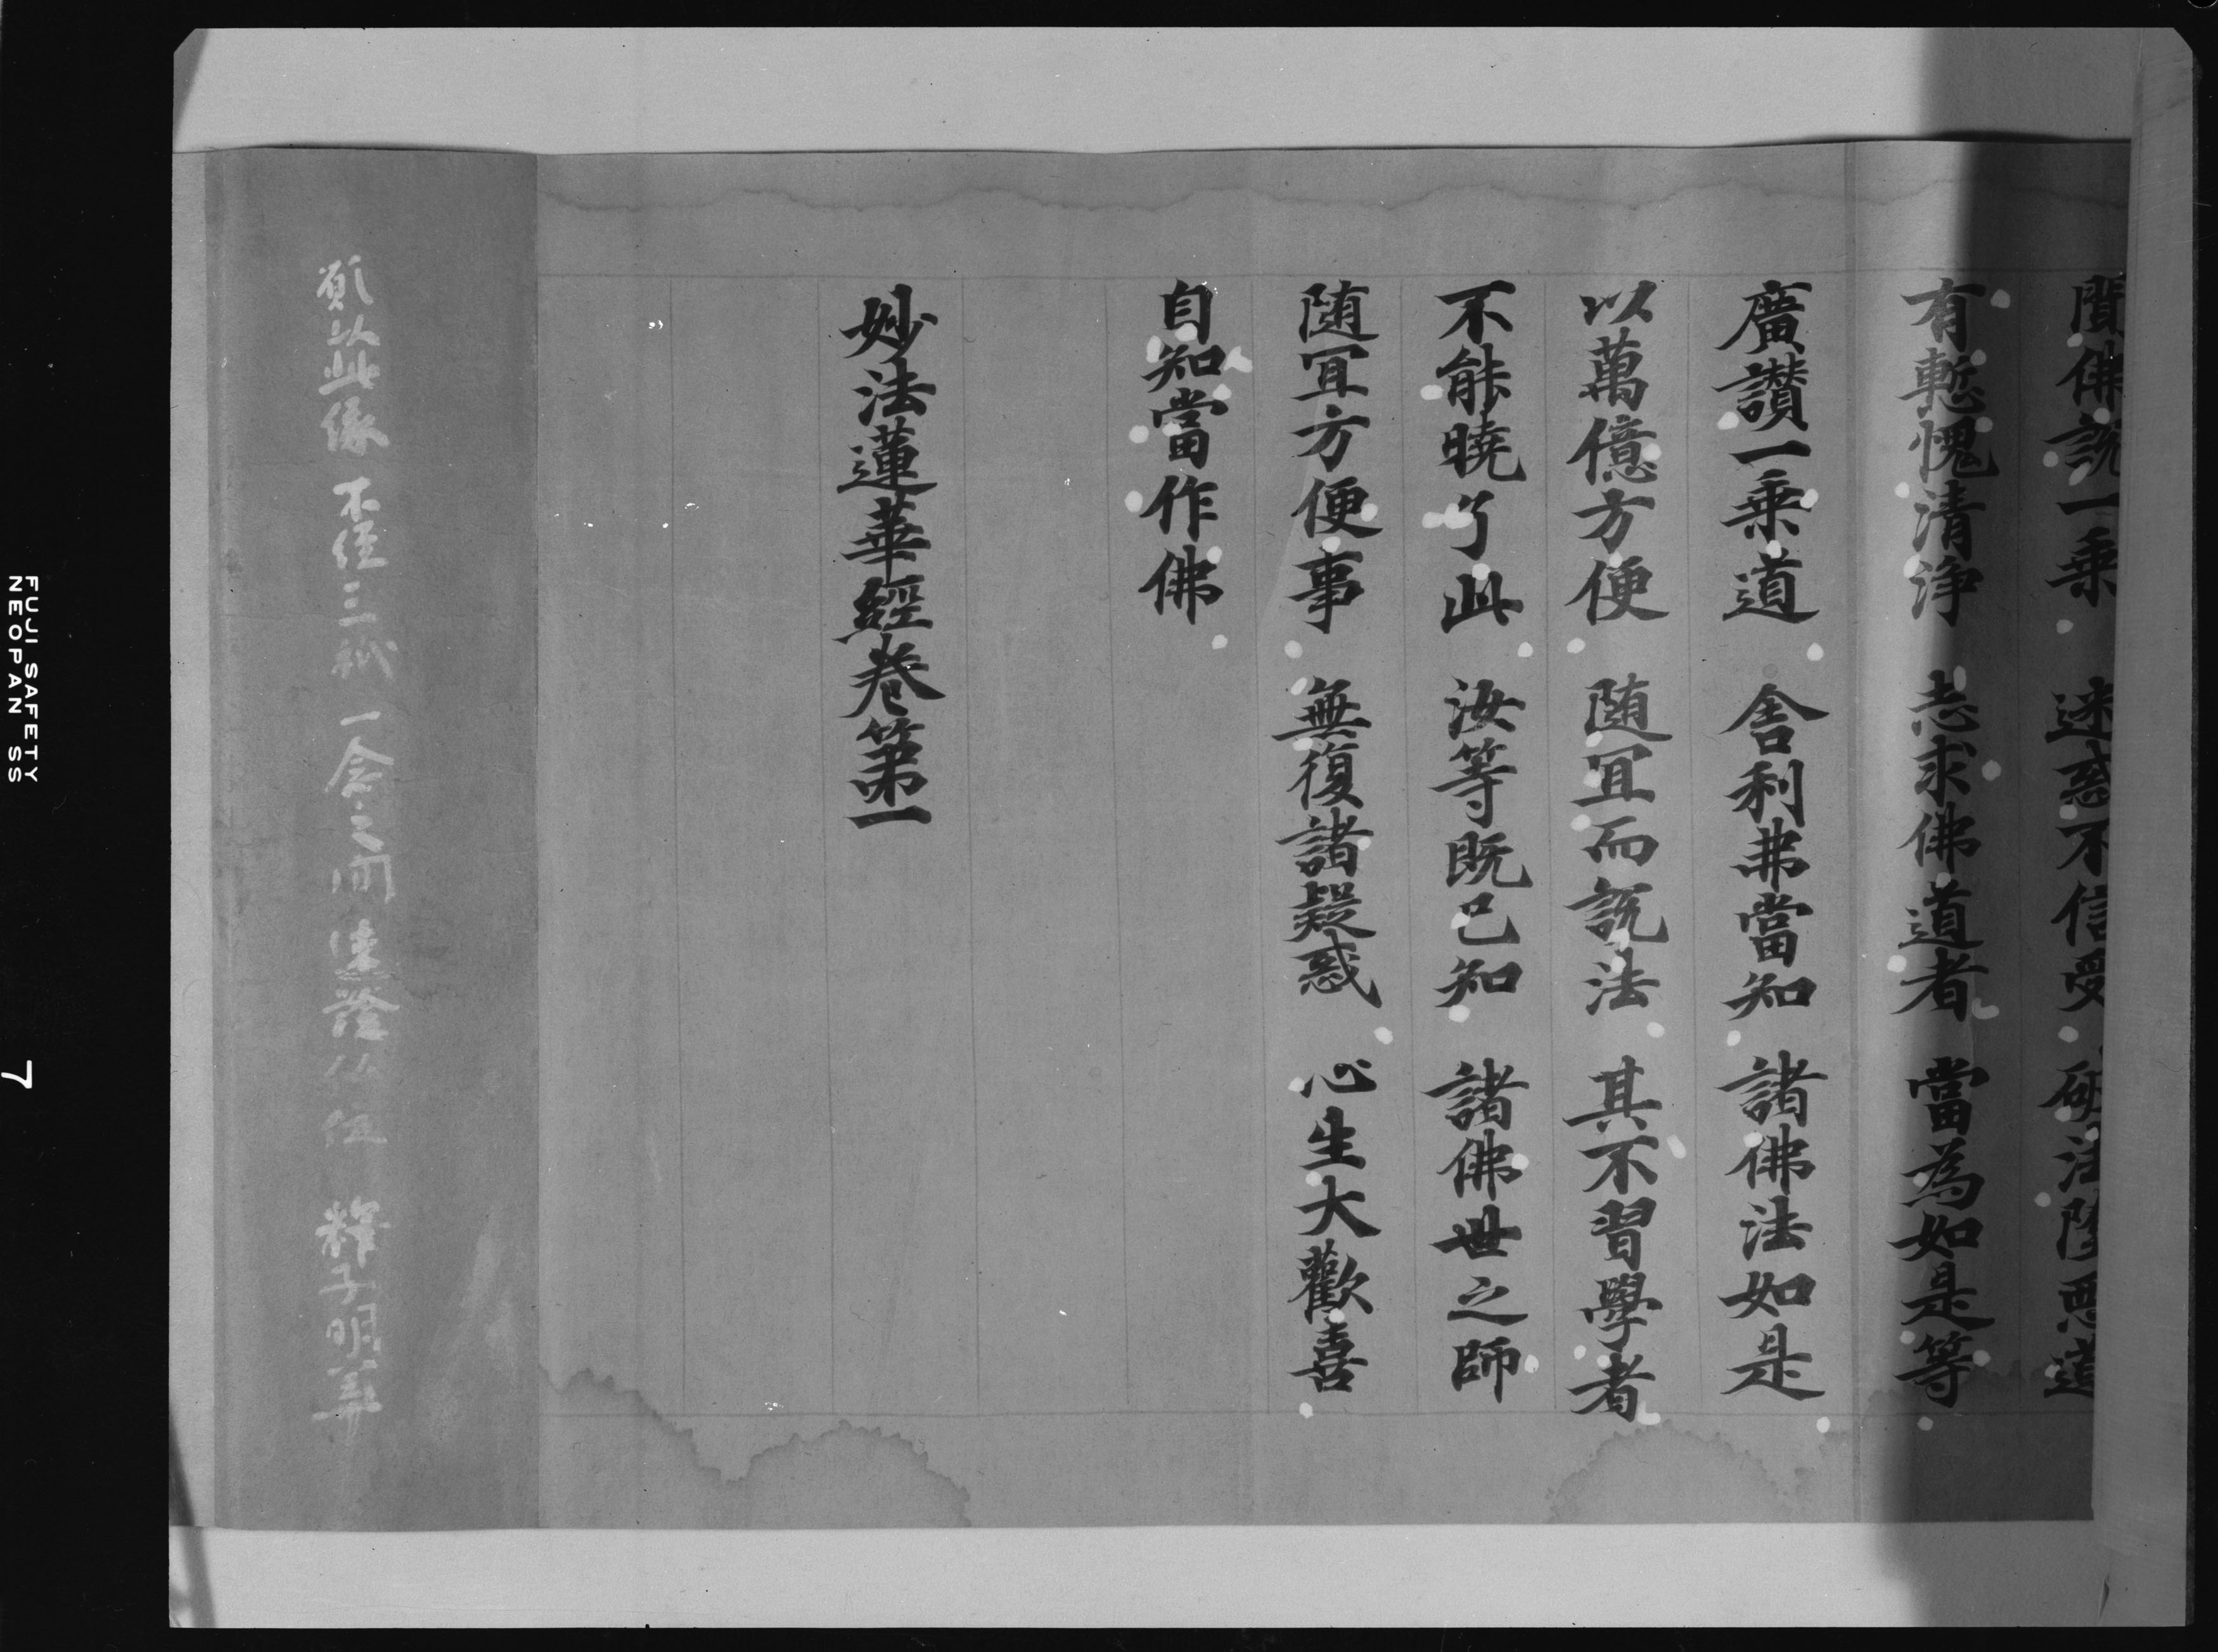 聞佛說一乘 迷惑不信受 破法墮惡道
有慙愧清淨 志求佛道者 當為如是等
廣讃一乗道 舎利弗當知 諸佛法如是
以萬億方便 随冝而說法 其不習學者
不能曉了此 汝等既已知 諸佛世之師
随冝方便事 無復諸疑惑 心生大歡喜
自知當作佛
妙法蓮華經卷第一
以此 不經三祇 一念之間 速證 位 釋子明
FUJI SAFETY
NEOPAN SS
7